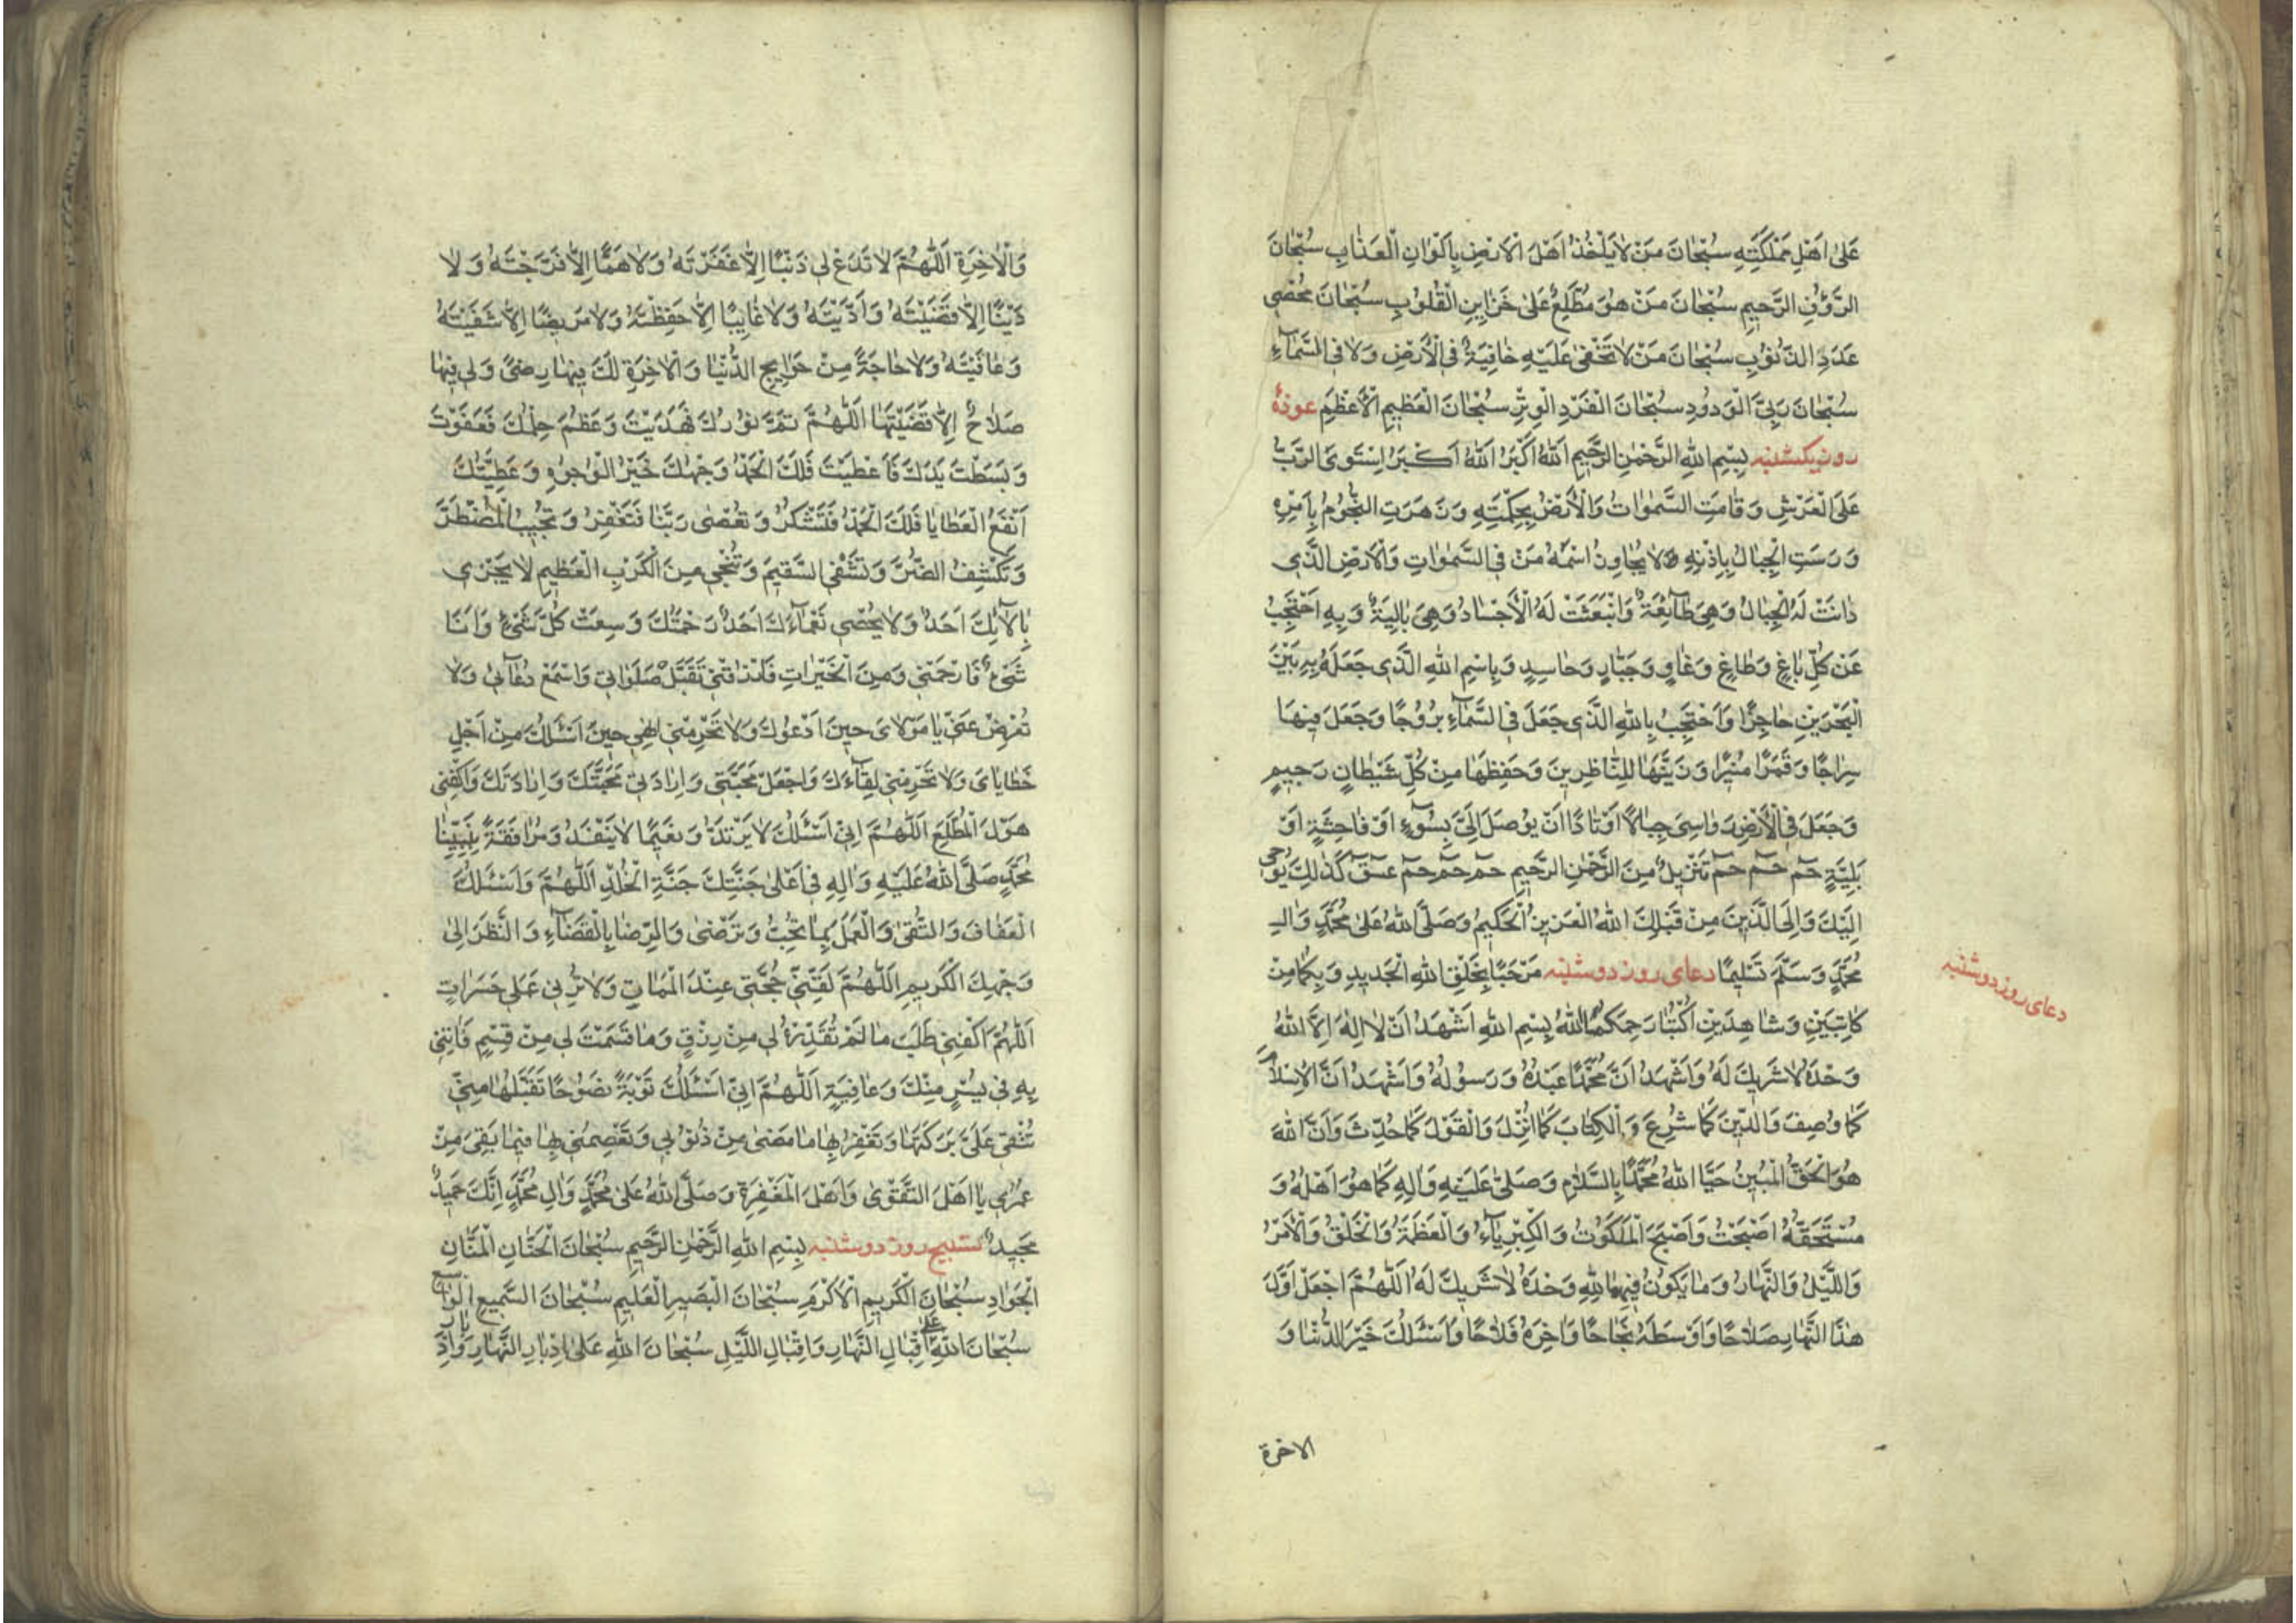 عَلیٰ اَهْلِ مَمْلَکَتِهِ سُبْحٰانَ مَنْ لاٰیَأْخُذُ اَهْلَ الْاَرْضِ بِاَلْوٰانِ الْعَذٰابِ سُبْحٰانَ
الرَّؤُفِ الرَّحیمِ سُبْحٰانَ مَنْ هُوَ مُطَّلِعٌ عَلیٰ خَزٰایِنِ الْقُلُوبِ سُبْحٰانَ مُحْصِی
عَدَدِ الذُّنُوبِ سُبْحٰانَ مَنْ لاٰتَخْفیٰ عَلَیْهِ خٰافِیَةٌ فِی الْاَرْضِ وَلاٰ فِی السَّمٰآءِ
سُبْحٰانَ رَبِّیَ الْوَدُودِ سُبْحٰانَ الْفَرْدِ الْوِتْرِ سُبْحٰانَ الْعَظیمِ الْاَعْظَمِ عوذهٔ
روز یکشنبه بِسْمِ اللهِ الرَّحْمٰنِ الرَّحیمِ اَللهُ اَکْبَرُ اَللهُ اَکْبَرُ اِسْتَوَی الرَّبُّ
عَلَی الْعَرْشِ وَقٰامَتِ السَّمٰوٰاتُ وَالْاَرْضُ بِحِکْمَتِهِ وَزَهَرَتِ النُّجُومُ بِاَمْرِهِ
وَرَسَتِ الْجِبٰالُ بِاِذْنِهِ وَلاٰیُجٰاوِزُ اسْمَهُ مَنْ فِی السَّمٰوٰاتِ وَالْاَرْضِ الَّذی
دٰانَتْ لَهُ الْجِبٰالُ وَهِیَ طٰآئِعَةٌ وَانْبَعَثَتْ لَهُ الْاَجْسٰادُ وَهِیَ بٰالِیَةٌ وَبِهِ اَحْتَجِبُ
عَنْ کُلِّ بٰاغٍ وَطٰاغٍ وَغٰاوٍ وَجَبّٰارٍ وَحٰاسِدٍ وَبِاسْمِ اللهِ الَّذی جَعَلَ بِهِ بَیْنَ
الْبَحْرَیْنِ حٰاجِزًا وَاَحْتَجِبُ بِاللهِ الَّذی جَعَلَ فِی السَّمٰآءِ بُرُوجًا وَجَعَلَ فیهٰا
سِرٰاجًا وَقَمَرًا مُنیرًا وَزَیَّنَهٰا لِلنّٰاظِرینَ وَحَفِظَهٰا مِنْ کُلِّ شَیْطٰانٍ رَجیمٍ
وَجَعَلَ فِی الْاَرْضِ رَوٰاسِیَ جِبٰالًا اَوْتٰادًا اَنْ یُوصَلَ اِلَیَّ بِسُوءٍ اَوْ فٰاحِشَةٍ اَوْ
بَلِیَّةٍ حٓمٓ حٓمٓ حٓمٓ تَنْزیلٌ مِنَ الرَّحْمٰنِ الرَّحیمِ حٓمٓ حٓمٓ حٓمٓ حٓمٓ عٓسٓقٓ کَذٰلِکَ یُوحی
اِلَیْکَ وَاِلَی الَّذینَ مِنْ قَبْلِکَ اللهُ الْعَزیزُ الْحَکیمُ وَصَلَّی اللهُ عَلیٰ مُحَمَّدٍ وَاٰلِ
مُحَمَّدٍ وَسَلَّمَ تَسْلیمًا دعای روز دوشنبه مَرْحَبًا بِخَلْقِ اللهِ الْجَدیدِ وَبِکُمٰا مِنْ
دعای روز دوشنبه
کٰاتِبَیْنِ وَشٰاهِدَیْنِ اُکْتُبٰا رَحِمَکُمَا اللهُ بِسْمِ اللهِ اَشْهَدُ اَنْ لاٰ اِلٰهَ اِلاَّ اللهُ
وَحْدَهُ لاٰشَریکَ لَهُ وَاَشْهَدُ اَنَّ مُحَمَّدًا عَبْدُهُ وَرَسُولُهُ وَاَشْهَدُ اَنَّ الْاِسْلاٰمَ
کَمٰا وُصِفَ وَالدّینَ کَمٰا شُرِعَ وَالْکِتٰابَ کَمٰا اُنْزِلَ وَالْقَوْلَ کَمٰا حُدِّثَ وَاَنَّ اللهَ
هُوَ الْحَقُّ الْمُبینُ حَیَّا اللهُ مُحَمَّدًا بِالسَّلاٰمِ وَصَلّیٰ عَلَیْهِ وَاٰلِهِ کَمٰا هُوَ اَهْلُهُ وَ
مُسْتَحَقُّهُ اَصْبَحْتُ وَاَصْبَحَ الْمَلَکُوتُ وَالْکِبْرِیٰآءُ وَالْعَظَمَةُ وَالْخَلْقُ وَالْاَمْرُ
وَاللَّیْلُ وَالنَّهٰارُ وَمٰایَکُونُ فیهِمٰا لِلّٰهِ وَحْدَهُ لاٰشَریکَ لَهُ اَللّٰهُمَّ اجْعَلْ اَوَّلَ
هٰذَا النَّهٰارِ صَلاٰحًا وَاَوْسَطَهُ نَجٰاحًا وَاٰخِرَهُ فَلاٰحًا وَاَسْئَلُکَ خَیْرَ الدُّنْیٰا وَ
الاخرة
وَالْاٰخِرَةِ اَللّٰهُمَّ لاٰتَدَعْ لی ذَنْبًا اِلاّٰ غَفَرْتَهُ وَلاٰهَمًّا اِلاّٰ فَرَّجْتَهُ وَلاٰ
دَیْنًا اِلاّٰ قَضَیْتَهُ وَاَدَّیْتَهُ وَلاٰغٰایِبًا اِلاّٰ حَفِظْتَهُ وَلاٰمَریضًا اِلاّٰ شَفَیْتَهُ
وَعٰافَیْتَهُ وَلاٰحٰاجَةً مِنْ حَوٰایِجِ الدُّنْیٰا وَالْاٰخِرَةِ لَکَ فیهٰا رِضیً وَلی فیهٰا
صَلاٰحٌ اِلاّٰ قَضَیْتَهٰا اَللّٰهُمَّ تَمَّ نُورُکَ فَهَدَیْتَ وَعَظُمَ حِلْمُکَ فَعَفَوْتَ
وَبَسَطْتَ یَدَکَ فَاَعْطَیْتَ فَلَکَ الْحَمْدُ وَجْهُکَ خَیْرُ الْوُجُوهِ وَعَطِیَّتُکَ
اَنْفَعُ الْعَطٰایٰا فَلَکَ الْحَمْدُ فَتَشْکُرُ وَتُعْصیٰ رَبَّنٰا فَتَغْفِرُ وَتُجیبُ الْمُضْطَرَّ
وَتَکْشِفُ الضُّرَّ وَتَشْفِی السَّقیمَ وَتُنْجی مِنَ الْکَرْبِ الْعَظیمِ لاٰیَجْزی
بِاٰلاٰئِکَ اَحَدٌ وَلاٰیُحْصی نَعْمٰآءَکَ اَحَدٌ رَحْمَتُکَ وَسِعَتْ کُلَّ شَیْءٍ وَاَنَا
شَیْءٌ فَارْحَمْنی وَمِنَ الْخَیْرٰاتِ فَارْزُقْنی تَقَبَّلْ صَلَوٰاتی وَاسْمَعْ دُعٰآئی وَلاٰ
تُعْرِضْ عَنّی یٰا مَوْلاٰیَ حینَ اَدْعُوکَ وَلاٰتَحْرِمْنی اِلٰهی حینَ اَسْئَلُکَ مِنْ اَجْلِ
خَطٰایٰایَ وَلاٰتَحْرِمْنی لِقٰآءَکَ وَاجْعَلْ مَحَبَّتی وَاِرٰادَتی مَحَبَّتَکَ وَاِرٰادَتَکَ وَاکْفِنی
هَوْلَ الْمُطَّلَعِ اَللّٰهُمَّ اِنّی اَسْئَلُکَ لاٰیَرْتَدُّ وَنَعیمًا لاٰیَنْفَدُ وَمُرٰافَقَةَ نَبِیِّنٰا
مُحَمَّدٍ صَلَّی اللهُ عَلَیْهِ وَاٰلِهِ فی اَعْلیٰ جَنَّتِکَ جَنَّةِ الْخُلْدِ اَللّٰهُمَّ وَاَسْئَلُکَ
الْعَفٰافَ وَالتُّقیٰ وَالْعَمَلَ بِمٰا تُحِبُّ وَتَرْضیٰ وَالرِّضٰا بِالْقَضٰآءِ وَالنَّظَرَ اِلیٰ
وَجْهِکَ الْکَریمِ اَللّٰهُمَّ لَقِّنّی حُجَّتی عِنْدَ الْمَمٰاتِ وَلاٰتُرِنی عَمَلی حَسَرٰاتٍ
اَللّٰهُمَّ اکْفِنی طَلَبَ مٰا لَمْ تُقَدِّرْهُ لی مِنْ رِزْقٍ وَمٰا قَسَمْتَ لی مِنْ قِسْمٍ فَاْتِنی
بِهِ فی یُسْرٍ مِنْکَ وَعٰافِیَةٍ اَللّٰهُمَّ اِنّی اَسْئَلُکَ تَوْبَةً نَصُوحًا تَقَبَّلُهٰا مِنّی
تُبْقی عَلَیَّ بَرَکَتَهٰا وَتَغْفِرُ بِهٰا مٰا مَضیٰ مِنْ ذُنُوبی وَتَعْصِمُنی بِهٰا فیمٰا بَقِیَ مِنْ
عُمْری یٰا اَهْلَ التَّقْویٰ وَاَهْلَ الْمَغْفِرَةِ وَصَلَّی اللهُ عَلیٰ مُحَمَّدٍ وَاٰلِ مُحَمَّدٍ اِنَّکَ حَمیدٌ
مَجیدٌ تسبیح روز دوشنبه بِسْمِ اللهِ الرَّحْمٰنِ الرَّحیمِ سُبْحٰانَ الْحَنّٰانِ الْمَنّٰانِ
الْجَوٰادِ سُبْحٰانَ الْکَریمِ الْاَکْرَمِ سُبْحٰانَ الْبَصیرِ الْعَلیمِ سُبْحٰانَ السَّمیعِ الْوٰاسِعِ
سُبْحٰانَ اللهِ عَلیٰ اِقْبٰالِ النَّهٰارِ وَاِقْبٰالِ اللَّیْلِ سُبْحٰانَ اللهِ عَلیٰ اِدْبٰارِ النَّهٰارِ وَاِدْبٰارِ